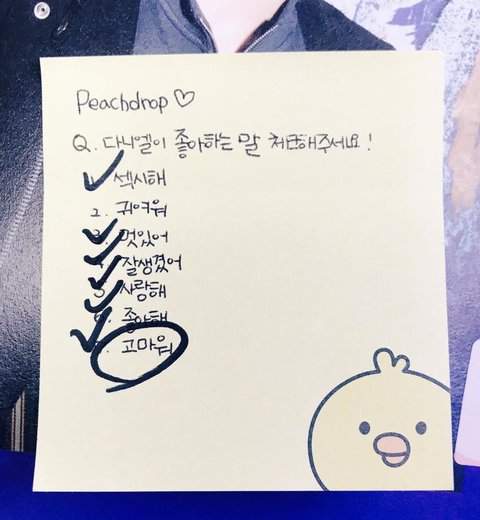 Peachdrop ♡
Q. 다니엘이 좋아하는 말 체크해주세요!
1. 섹시해
2. 귀여워
3. 멋있어
4. 잘생겼어
5. 사랑해
6. 좋아해
7. 고마워